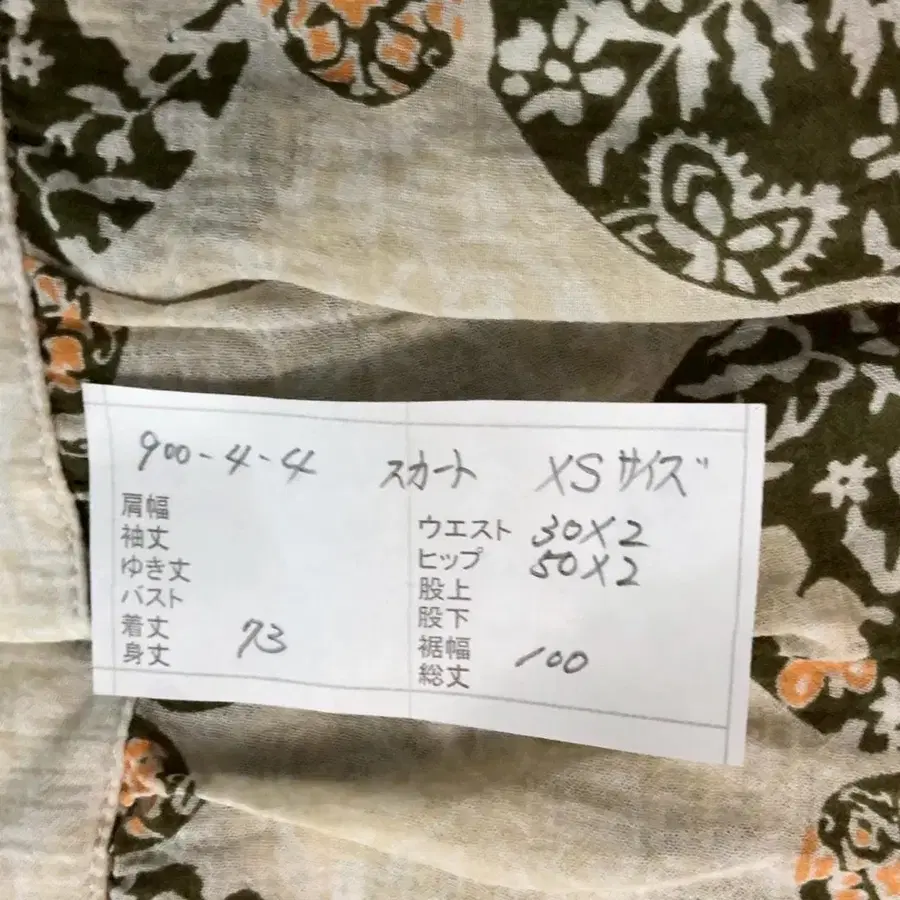 900-4-4 スカート XSサイズ
肩幅
袖丈
ゆき丈
バスト
着丈 73
身丈
ウエスト 30×2
ヒップ 50×2
股上
股下
裾幅 100
総丈